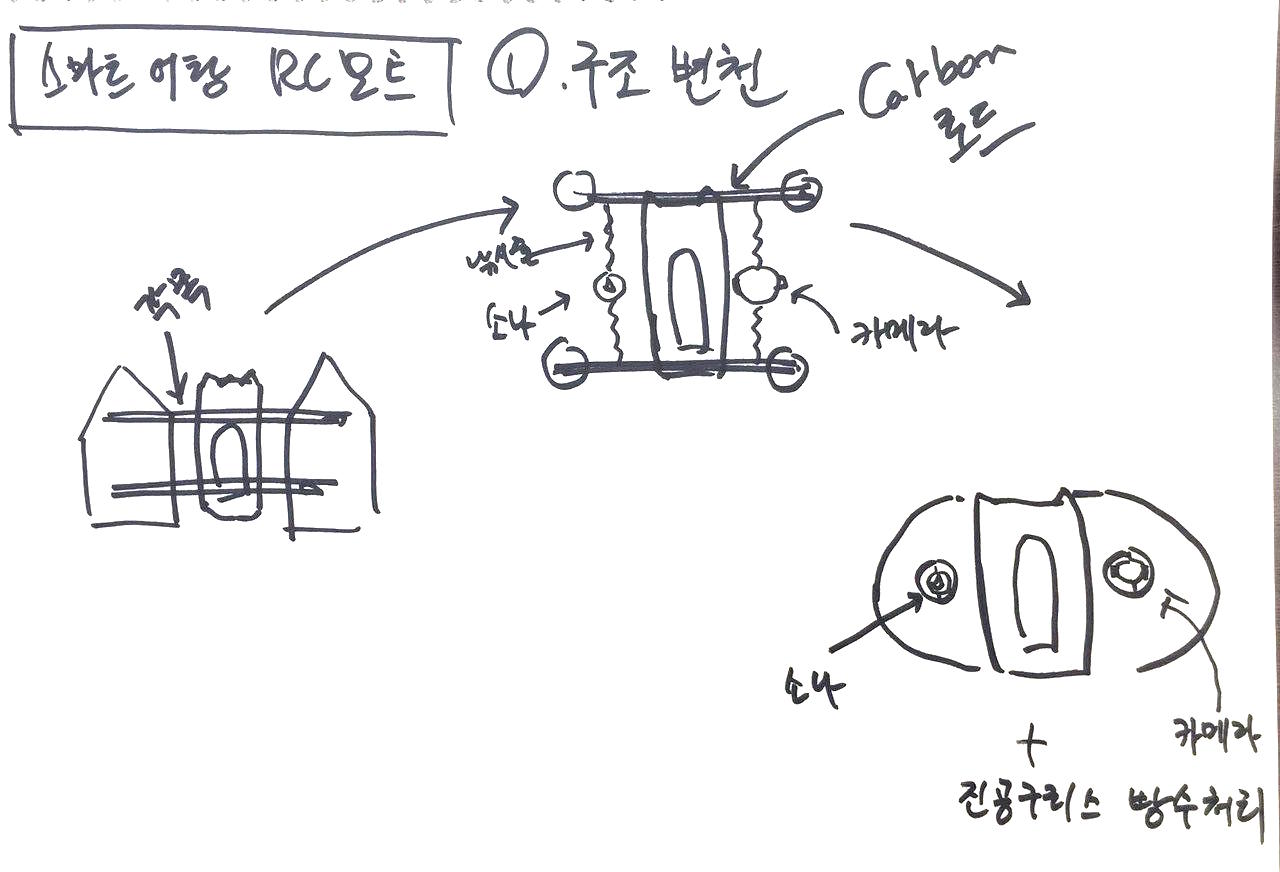 스마트 어탐 RC보트
① .구조 변천
Carbon
로드
낚시줄
소나
카메라
각목
소나
카메라
+
진공구리스 방수처리